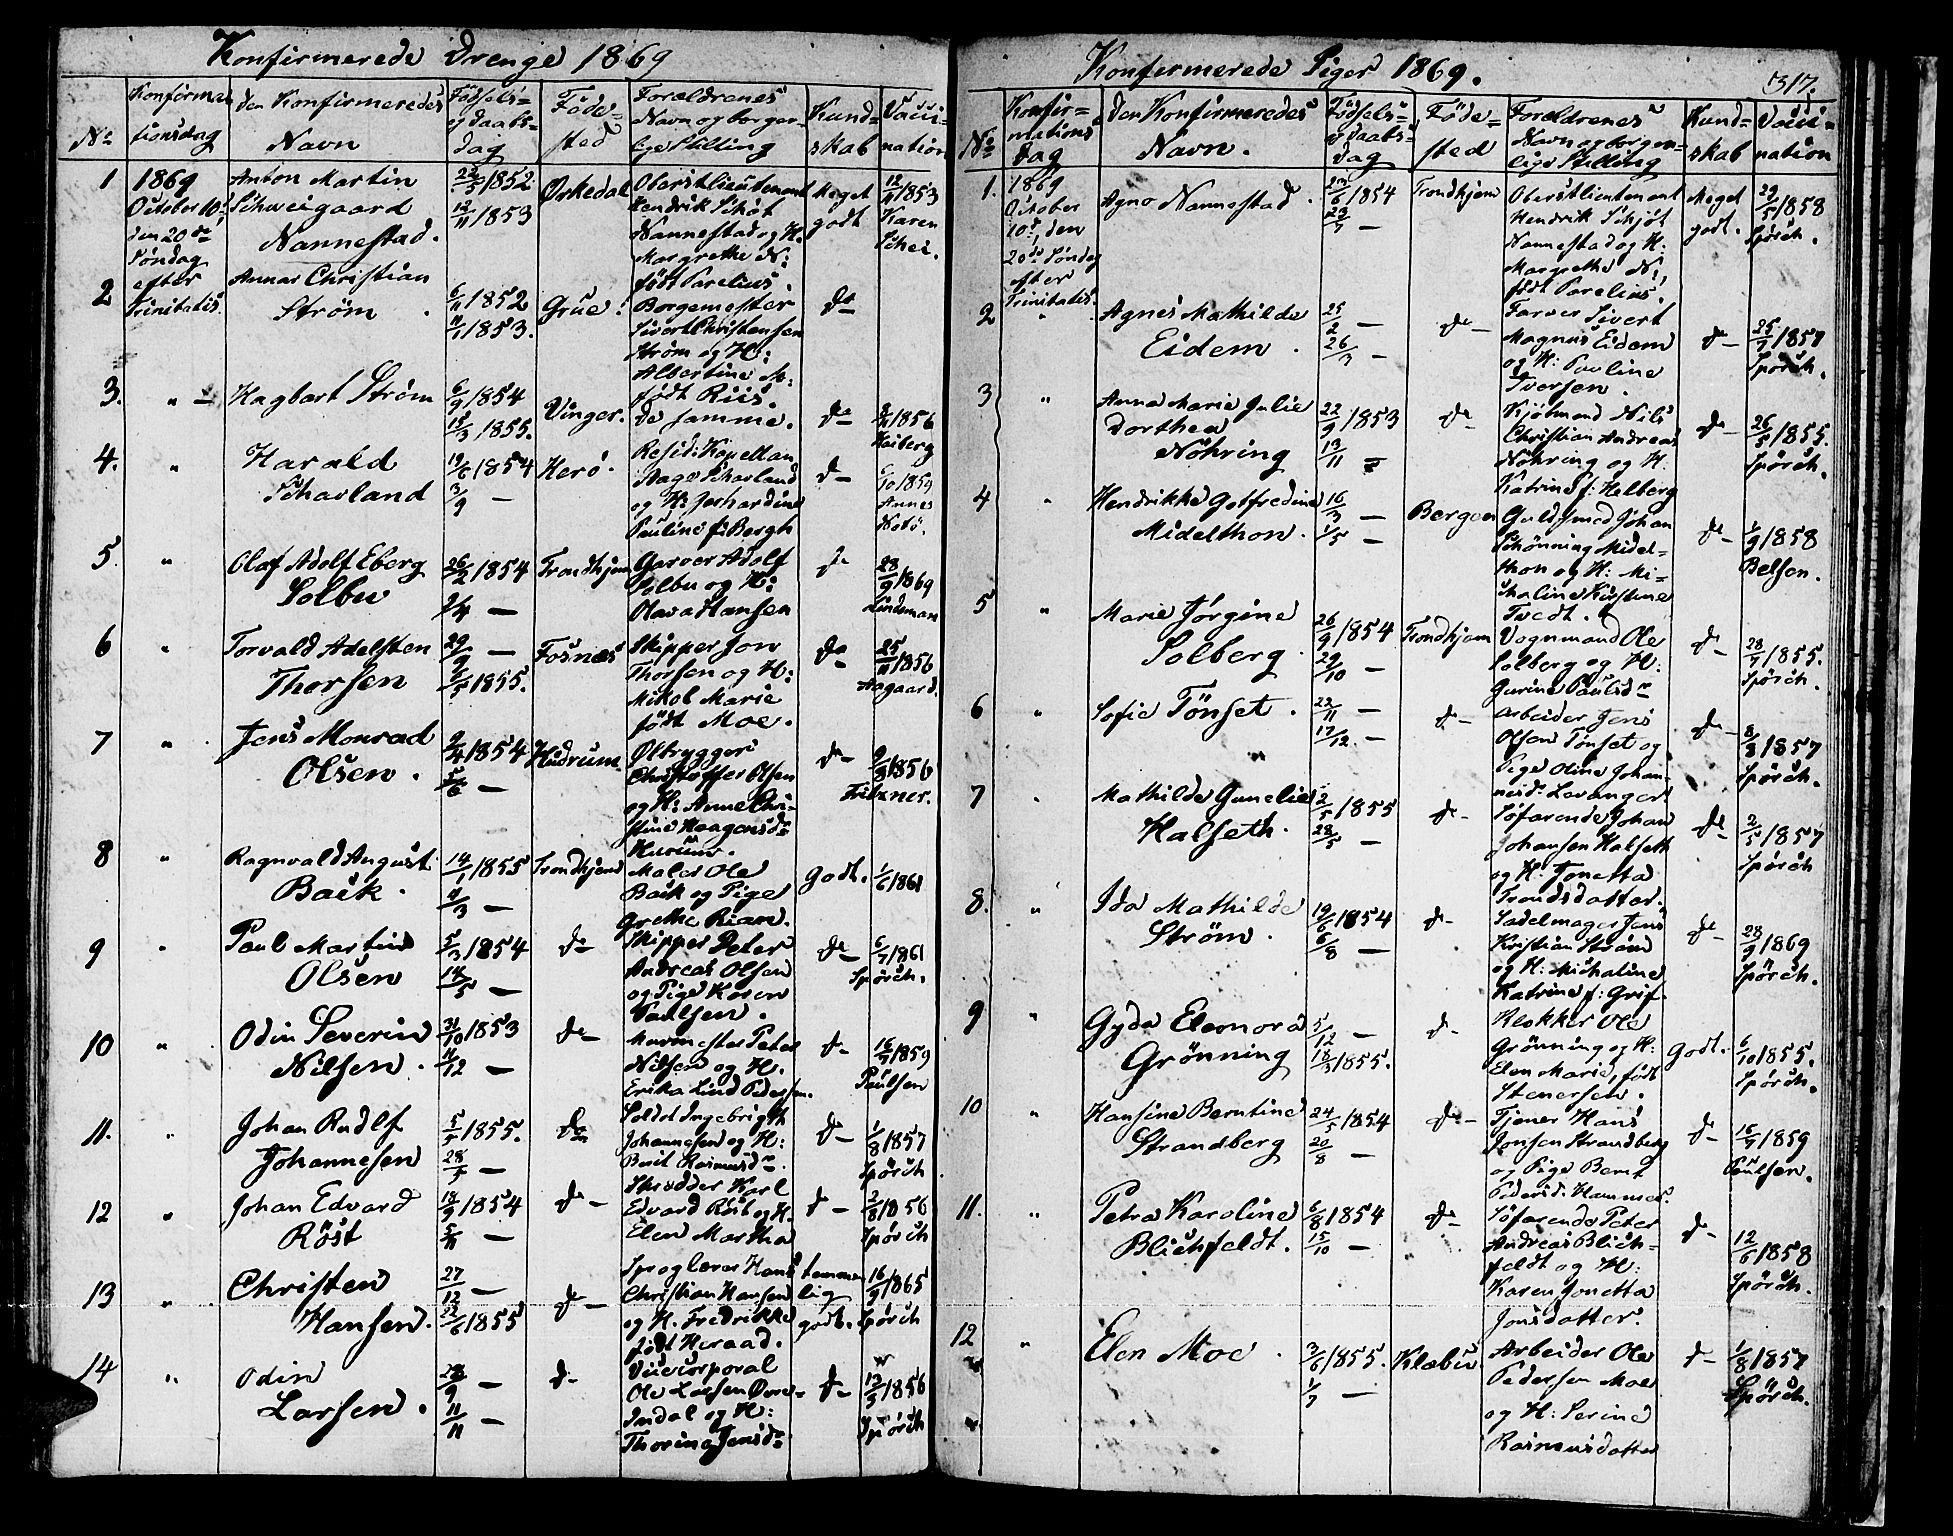 Konfirmerede Drenge 1869
No
Konfirma-
tionsdag
den Konfirmeredes
Navn
Fødsels-
og Daabs-
dag
Føde-
sted
Forældrenes
Navn og borger-
lige Stilling
Kund-
skab
Vacci-
nation
1
1869
October 10de
den 20de
Søndag
efter
Trinitatis.
Anton Martin
Schweigaard
Nannestad.
22/5 1852
12/11 1853
Ørkedal
Oberstlieutenant
Hendrik Schøt
Nannestad og H.
Margrethe N:
født Parelius.
Meget
godt
12/11 1853
Karen
Schei.
2
Annar Christian
Strøm
6/11 1852
11/1 1853.
Grue.
Borgemester
Sivert Christensen
Strøm og H:
Albertine M:
født Riis.
do
3.
" —
Hagbart Strøm
6/9 1854
15/3 1855.
Vinger.
de samme.
do
1856
Heiberg
4.
"
Harald
Scharland
19/6 1854
3/9 —
Herö.
Resid: Kapellan
Scharland
og H: Gerhardine
Pauline f: Bergh
do
6/10 1859
Annes
5.
"
Olaf Adolf Eberg
Solbu
26/2 1854
2/4 —
Trondhjem
Garver Adolf
Solbu og H:
Olava Hansen
do
28/9 1869
Lindeman
6
"
Torvald Adelsten
Thorsen
29/9 —
1855.
Fosnæs
Skipper Jon
Thorsen og H:
Mikol Marie
født Moe.
do
25/11 1856
Aagaard.
7
"
Jens Monrad
Olsen.
2/4 1854
5/6 —
Hudrum
Ølbrygger
Christoffer Olsen
og H: Anne Chri-
stine Haagensdr
Do
9/9 1856
Fritzner.
8
"
Ragnvald August
Bäck.
14/1 1855
11/3 —
Trondhjem
Maler Ole
Bäck og Pige
Grethe Rian.
godt.
1/6 1861
9
"
Paul Martin
Olsen
5/3 1854
14/5 —
do
Skipper Peter
Andreas Olsen
og Pige Karen
Paulsen.
do
6/7 1861
Spörch.
10
"
Odin Severin
Nilsen.
31/10 1853
11/12 —
do
Murmester Peter
Nilsen og H.
Erika Lind Pedersen.
do
16/7 1859
Paulsen
11.
"
Johan Rudlf
Johannesen
5/5 1855.
28/5 —
do
Soldat Ingebrigt
Johannesen og H:
Berit Rasmusdr.
do
1/8 1857
Spörch
12
"
Johan Edvard
Röst
18/9 1854
5/11 —
do
Skrædder Karl
Edvard Röst og H.
Elen Martha
do
2/8 1856
Spörch
13
"
Christen
Hansen.
27/12 —
22/6 1855
do
Sproglærer Hans
Christian Hansen
og H. Fredrikke
født Heraad.
temme-
lig
godt.
16/9 1865
Spörch
14
"
Odin
Larsen.
9 —
11/11 —
do
Vicecorporal
Ole Larsen Øvre-
Indal og H:
Thorina Jensdr
do
12/3 1856
Spörch
Konfirmerede Piger 1869.
317.
No
Konfir-
mations
Dag
Den Konfirmeredes
Navn.
Fødsels-
og Daabs-
dag
Føde-
sted
Forældrenes
Navn og borger-
lige Stilling
Kund-
skab
Vacci-
nation
1.
1869
October
10de, den
20de Søndag
efter
Trinitatis.
Agno Nannestad.
6 1854
23/7 —
Trondhjem
Oberstlieutenant
Hendrik Schjøt
Nannestad og H:
Margrethe N:
født Parelius.
Meget
godt.
29/5 1858
Spörch.
2
"
Agnes Mathilde
Eidem.
25/2 —
26/3 —
do
Farver Sivert
Magnus Eidem
og H: Pauline
Iversen.
do
25/7 1857
Spörch.
3
"
Anna Marie Julie
Dorthea
Nöhring
22/9 1853
13/11 —
do
Kjøbmand Nils
Christian Andreas
Nöhring og H.
Katrine f: Helberg
do
26/5 1855.
Spörch.
4
"
Hendrikke Gotfredine
Midelthon.
16/3 —
1/5 —
Bergen
Guldsmed Johan
Schönning Midel-
thon og H: Mi-
chaline Kirstine
Tvedt.
do
1/9 1858
Belsen.
5
"
Marie Jørgine
Solberg
26/9 1854
29/10 —
Trondhjem
Vognmand Ole
Solberg og H:
Gurine Paulsdr
do
28/7 1855.
Spörch.
6
"
Sofie Tönset.
22/11 —
17/12 —
do
Arbeider Jens
Olsen Tönset og
Pige Oline Johan-
nesd. Levanger
do
8/8 1857
Spörch.
7
"
Mathilde Gunelie
Halseth.
2/5 1855
28/5 —
do
Søfarende Johan
Johansen Halseth
og H: Jonetta
Trondsdatter.
do
2/5 1857
Spörch
8.
"
Ida Mathilde
Ström.
19/6 1854
6/8 —
do
Sadelmager Jens
Kristian Ström
og H: Michaline
Katrine f: Grif.
do
28/9 1869
Spörch.
9
"
Gyda Eleonora
Grönning
5/12 —
18/3 1855.
do
Klokker Ole
Grönning og H:
Elen Marie, født
Stenersen.
godt.
6/10 1855.
Spörch.
10
"
Hansine Berntine
Strandberg
24/5 1854
20/8 —
do
Tjener Hans
Jonsen Strandberg
og Pige Bernt
Pedersd. Hammer.
do
16/7 1859
Paulsen.
11.
"
Petra Karoline
Blichfeldt.
6/8 1854
15/10 —
do
Søfarende Peter
Andreas Blich-
feldt og H:
Karen Jonetta
Jonsdatter.
do
12/6 1858
Spörch.
12
"
Elen Moe.
3/6 1855.
1/7 —
Klæbu
Arbeider Ole
Pedersen Moe
og H: Serine
Rasmusdatter
do
1/8 1857
Spörch.